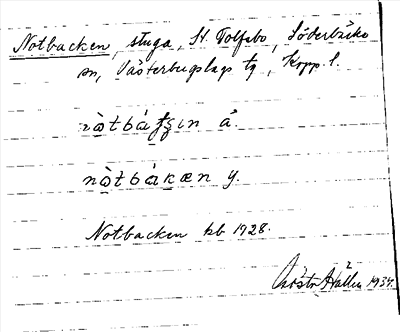 Notbacken, stuga, St. Tolfsbo, Söderbärke
sn, Västerbergslags tg, Kopp. l.
nòtbáʄʒin ä.
nòtbákæn y.
Notbacken kb 1928.
Gösta Hallén 1934.